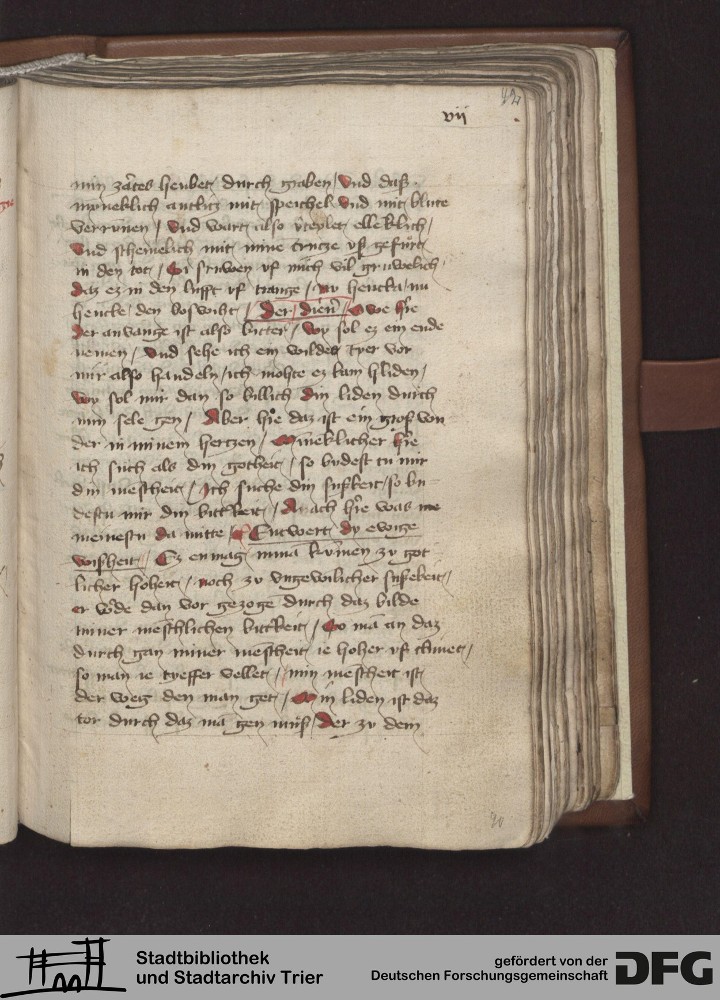 42
vii
min zartes heubet durch graben / Vnd daß
mynneklich antlitz mit speichel Vnd mit blute
verrunen / Vnd wart also v̓teylet ellēklich /
Vnd schemelich mit mime crucze vf gefůrt
in den tot / Si schruwen vf mich vil gruwelich
daz ez in den lufft vf trange / nu hencka / nu
hencke den boswiht / Der dien̄ / Owe h̓re
der anvange ist also bitter / wy sol ez ein ende
nemen / Vnd sehe ich ein wildes tyer vor
mir also handeln / ich mohte ez kam h̓liden /
wy sol mir dan so billich din liden durch
min sele gen / Aber h̓re daz ist ein groß won
der in minem hertzen / Mīneklicher h̓re
ich such als din gotheit / so budest tu mir
din mēscheit / Ich suche din sußkeit / so bu
destu mir din bitt̓keit / Ach h̓re was me
meinestu da mitte / Entwert dy ewige
wißheit / Ez enmag nimā kūmen zv got
licher hoheit / noch zv vngewonlicher sußekeit /
er w̓de dan vor gezogē durch daz bilde
miner mēschlichen bitt̓keit / So mā an daz
durch gan miner mēscheit ie hoher vf climet /
so man ie tyeffer vellet / min mēscheit ist
der weg den man get / Min liden ist daz
tor durch daz mā gen můß / Der zv dem
Stadtbibliothek
und Stadtarchiv Trier
gefördert von der
Deutschen Forschungsgemeinschaft
DFG